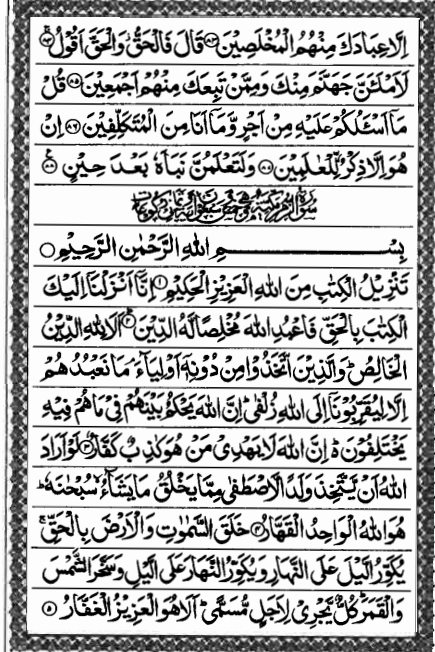 اِلَّا عِبَادَكَ مِنْهُمُ الْمُخْلَصِيْنَ ﴿۸۳﴾ قَالَ فَالْحَقُّ وَالْحَقَّ اَقُوْلُ ﴿۸۴﴾
لَاَمْلَـَٔنَّ جَهَنَّمَ مِنْكَ وَمِمَّنْ تَبِعَكَ مِنْهُمْ اَجْمَعِيْنَ ﴿۸۵﴾ قُلْ
مَاۤ اَسْـَٔلُكُمْ عَلَيْهِ مِنْ اَجْرٍ وَّمَاۤ اَنَا مِنَ الْمُتَكَلِّفِيْنَ ﴿۸۶﴾ اِنْ
هُوَ اِلَّا ذِكْرٌ لِّلْعٰلَمِيْنَ ﴿۸۷﴾ وَلَتَعْلَمُنَّ نَبَاَهٗ بَعْدَ حِيْنٍ ﴿۸۸﴾
بِسْمِ اللهِ الرَّحْمٰنِ الرَّحِيْمِ
تَنْزِيْلُ الْكِتٰبِ مِنَ اللهِ الْعَزِيْزِ الْحَكِيْمِ ﴿۱﴾ اِنَّاۤ اَنْزَلْنَاۤ اِلَيْكَ
الْكِتٰبَ بِالْحَقِّ فَاعْبُدِ اللهَ مُخْلِصًا لَّهُ الدِّيْنَ ﴿۲﴾ اَلَا لِلّٰهِ الدِّيْنُ
الْخَالِصُ ؕ وَالَّذِيْنَ اتَّخَذُوْا مِنْ دُوْنِهٖۤ اَوْلِيَآءَ ۘ مَا نَعْبُدُهُمْ
اِلَّا لِيُقَرِّبُوْنَاۤ اِلَى اللهِ زُلْفٰى ؕ اِنَّ اللهَ يَحْكُمُ بَيْنَهُمْ فِيْ مَا هُمْ فِيْهِ
يَخْتَلِفُوْنَ ؕ۬ اِنَّ اللهَ لَا يَهْدِيْ مَنْ هُوَ كٰذِبٌ كَفَّارٌ ﴿۳﴾ لَوْ اَرَادَ
اللهُ اَنْ يَّتَّخِذَ وَلَدًا لَّاصْطَفٰى مِمَّا يَخْلُقُ مَا يَشَآءُ ۙ سُبْحٰنَهٗ ؕ
هُوَ اللهُ الْوَاحِدُ الْقَهَّارُ ﴿۴﴾ خَلَقَ السَّمٰوٰتِ وَالْاَرْضَ بِالْحَقِّ ۚ
يُكَوِّرُ الَّيْلَ عَلَى النَّهَارِ وَيُكَوِّرُ النَّهَارَ عَلَى الَّيْلِ وَسَخَّرَ الشَّمْسَ
وَالْقَمَرَ ؕ كُلٌّ يَّجْرِيْ لِاَجَلٍ مُّسَمًّى ؕ اَلَا هُوَ الْعَزِيْزُ الْغَفَّارُ ﴿۵﴾